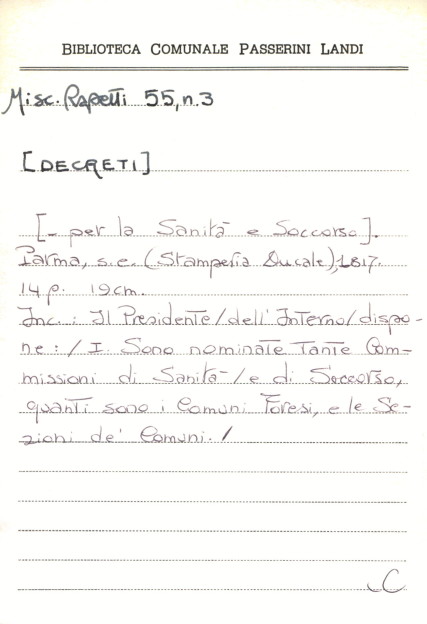 BIBLIOTECA COMUNALE PASSERINI LANDI
Misc. Rapetti 55, n. 3
[DECRETI]
[- per la Sanità e Soccorso].
Parma, s.e. (Stamperia Ducale), 1817.
14 p. 19 cm.
Inc.: Il Presidente/dell'Interno/dispo-
ne:/I. Sono nominate Tante Com-
missioni di Sanità/e di Soccorso,
quanti sono i Comuni Foresi, e le Se-
zioni de' Comuni./
C